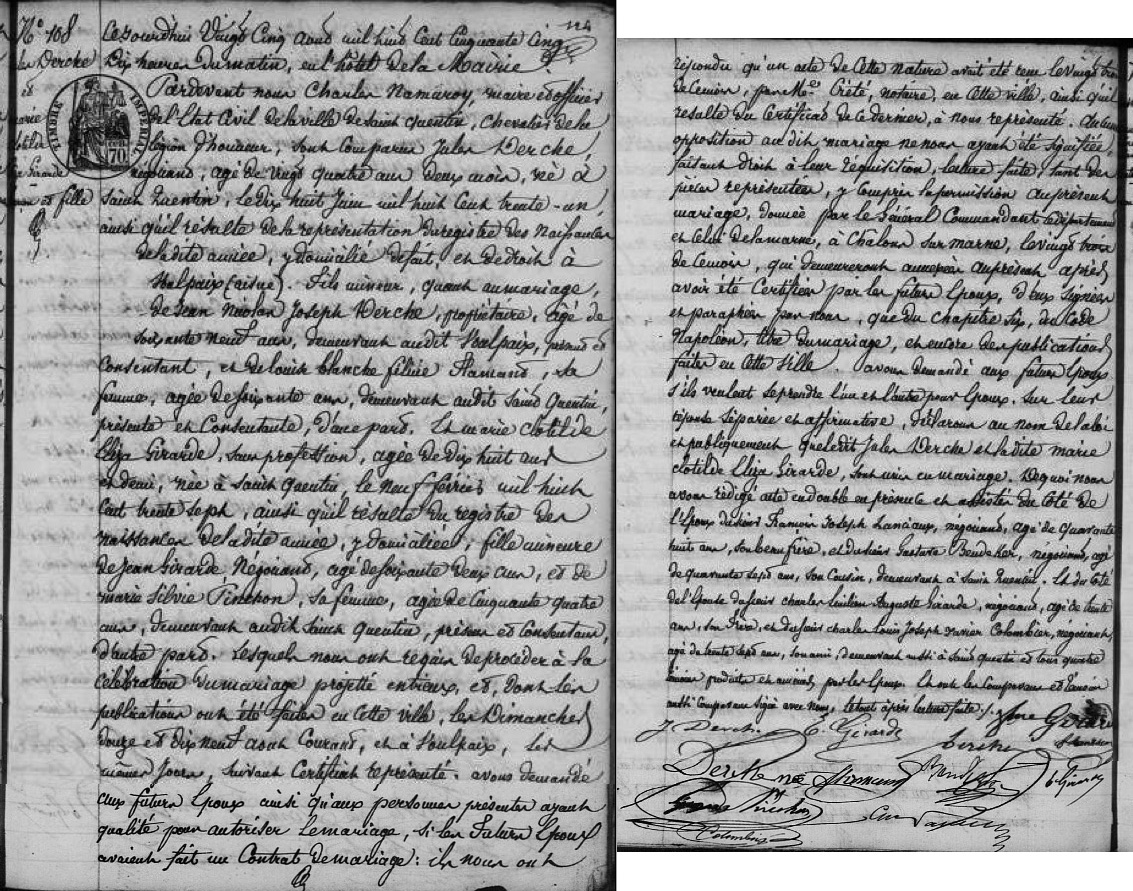 N° 108
Dercke
et
marie
clotilde
Eliza Girarde
et fille
TIMBRE IMPERIAL
70
124
Ce jourd'hui Vingt Cinq aout mil huit Cent Cinquante Cinq
Dix heures du matin, en l'hôtel de la Mairie.
Pardevant nous Charles Namuroy, maire et officier
de l'Etat Civil de la ville de Saint Quentin, Chevalier de la
légion d'honneur, sont Comparus Jules Dercke
négociant, agé de vingt quatre ans deux mois, né à
Saint Quentin, le Dix huit Juin mil huit Cent trente-un,
ainsi qu'il résulte de la représentation Du registre des Naissances
de la dite année, y domicilié de fait, et de droit à
Voulpaix (aisne). Fils mineur, quant au mariage,
de Jean Nicolas Joseph Dercke, propriétaire, agé de
soixante neuf ans, demeurant audit Voulpaix, présent et
Consentant, et de louise blanche filivie Flamand, sa
femme, agée de soixante ans, demeurant audit Saint Quentin,
présente et Consentante, d'une part. Et marie Clotilde
Eliza Girarde, sans profession, agée de Dix huit ans
et demi, née à Saint Quentin le neuf février mil huit
Cent trente Sept, ainsi qu'il résulte du registre des
naissances de la dite année, y domiciliée, fille mineure
de Jean Girarde Négociant, agé de soixante deux ans, et de
marie Silvie Pinchon, sa femme, agée de Cinquante quatre
ans, demeurant audit Saint Quentin, présens et Consentans,
d'autre part. Lesquels nous ont requis de procéder à la
Célébration du mariage projetté entr'eux, et, dont les
publications ont été faites en Cette ville, les Dimanches
douze et dix neuf aout Courant, et à Voulpaix, les
mêmes jours, suivant Certificat représenté. avons demandé
aux futurs Epoux ainsi qu'aux personnes présentes ayant
qualité pour autoriser le mariage, si les Futurs Epoux
avaient fait un Contrat de mariage: ils nous ont
répondu qu'un acte de Cette nature avait été reçu le vingt trois
de Ce mois, par Me Crété, notaire, en Cette ville, ainsi qu'il
résulte du Certificat de Ce dernier, à nous représenté. Aucune
opposition au dit mariage ne nous ayant été signifiée,
faisant droit à leur réquisition, lecture faite, tant des
pièces représentées, y Compris la permission au présent
mariage, donnée par le Général Commandant le département
et Celui de la marne, à Chalons sur marne, le vingt trois
de Ce mois, qui demeureront annexées au présent après
avoir été Certifiées par les futurs Epoux, d'eux signées
et paraphées par nous, que du Chapitre Six, du Code
Napoléon, titre du mariage, et encore des publications
faites en Cette Ville. avons demandé aux futurs Epoux
s'ils veulent se prendre l'un et l'autre pour Epoux. Sur leur
réponse séparée et affirmative, déclarons au nom de la loi
et publiquement que ledit Jules Dercke et la dite marie
Clotilde Eliza Girarde, sont unis en mariage. De quoi nous
avons rédigé acte en double en présence et assistés du Côté de
l'Epoux du sieur François Joseph Lanciaux, négociant, agé de quarante
huit ans, son beau frère, et du sieur Gustave négociant, agé
de quarante Sept ans, son Cousin, demeurant à Saint Quentin. Et du Côté
de l'Epouse du sieur Charles Auguste Girarde, négociant, agé de trente
ans, son frère, et du sieur Charles Louis Joseph Xavier Colombier, négociant,
agé de trente Sept ans, son ami, demeurant aussi à Saint Quentin et tous quatre
témoins produits et amenés par les Epoux. Et ont les Comparans et témoins
aussi Comparans signé avec nous, le tout après lecture faite.
J Dercke E. Girarde
Dercke née Flamand
Pinchon
Colombier